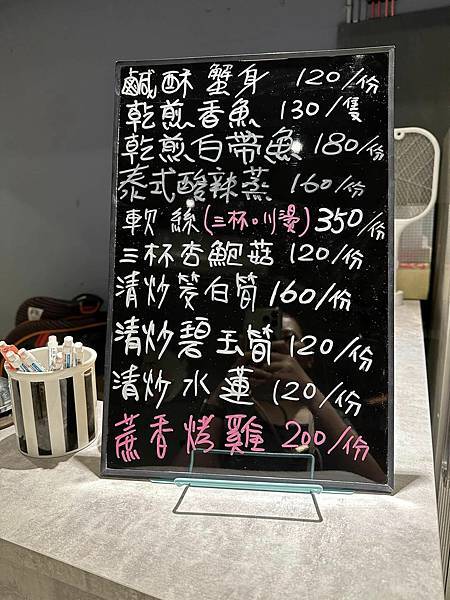 鹹酥蟹身 120/份
乾煎香魚 130/隻
乾煎白帶魚 180/份
泰式酸辣蒸 160/份
軟絲(三杯川燙)350/份
三杯杏鮑菇 120/份
清炒筊白筒 160/份
清炒碧玉筒 120/份
清炒水蓮 120/份
蔗香烤雞 200/份